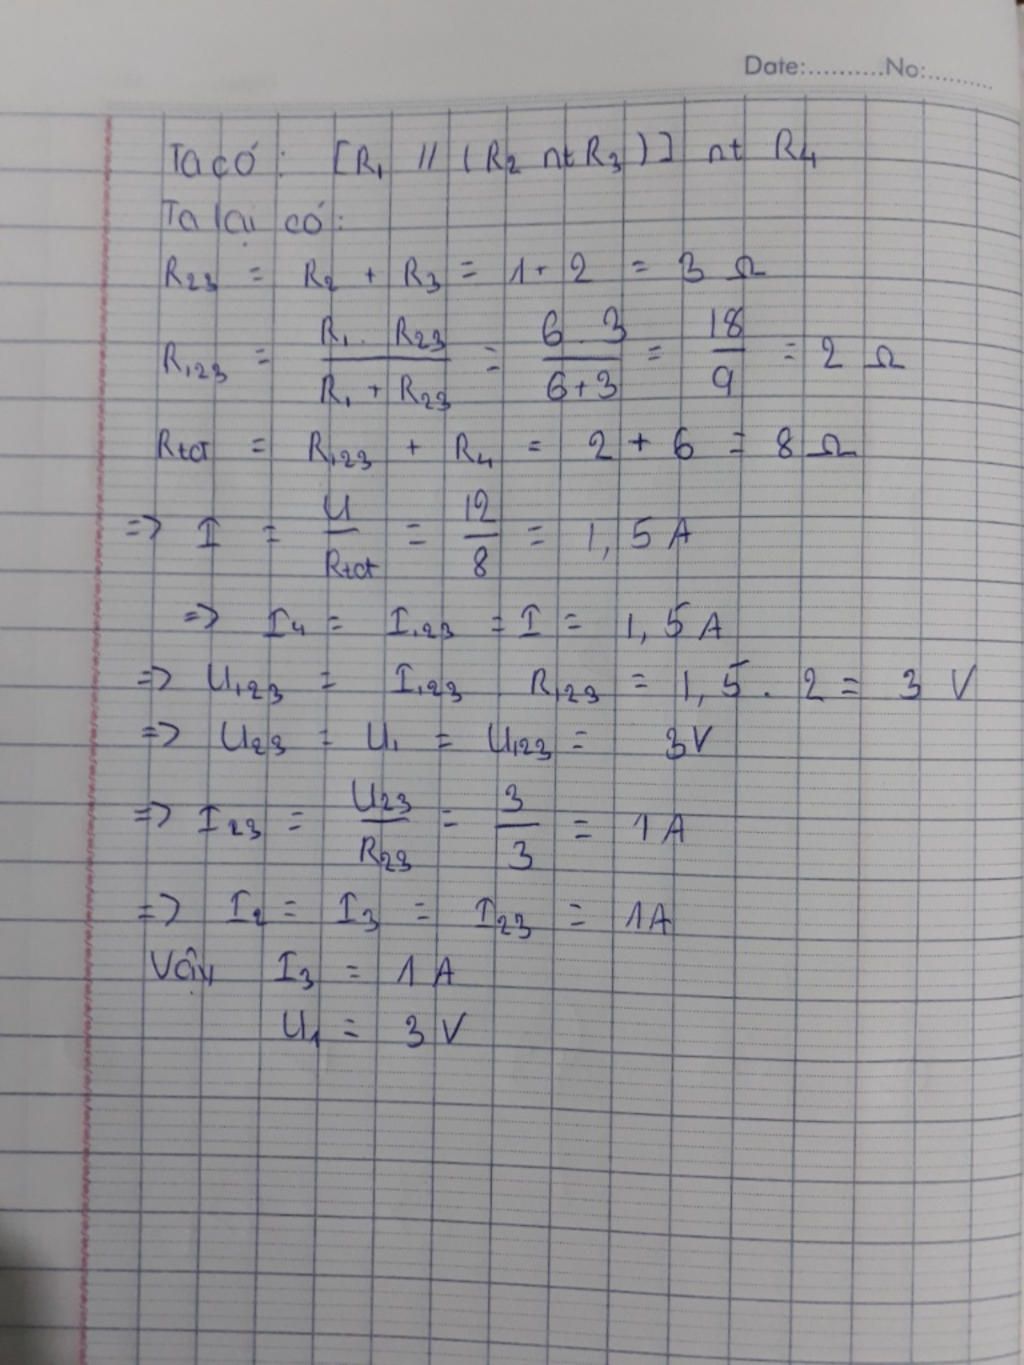 Date:..........No:.........
Ta có: [R₁ // (R₂ nt R₃)] nt R₄
Ta lại có:
R₂₃ = R₂ + R₃ = 1 + 2 = 3 Ω
R₁₂₃ = (R₁ . R₂₃)/(R₁ + R₂₃) = (6 . 3)/(6+3) = 18/9 = 2 Ω
Rtđ = R₁₂₃ + R₄ = 2 + 6 = 8 Ω
=> I = U/Rtđ = 12/8 = 1,5 A
=> I₄ = I₁₂₃ = I = 1,5 A
=> U₁₂₃ = I₁₂₃ R₁₂₃ = 1,5 . 2 = 3 V
=> U₂₃ = U₁ = U₁₂₃ = 3V
=> I₂₃ = U₂₃/R₂₃ = 3/3 = 1 A
=> I₂ = I₃ = I₂₃ = 1A
Vậy I₃ = 1 A
U₁ = 3 V